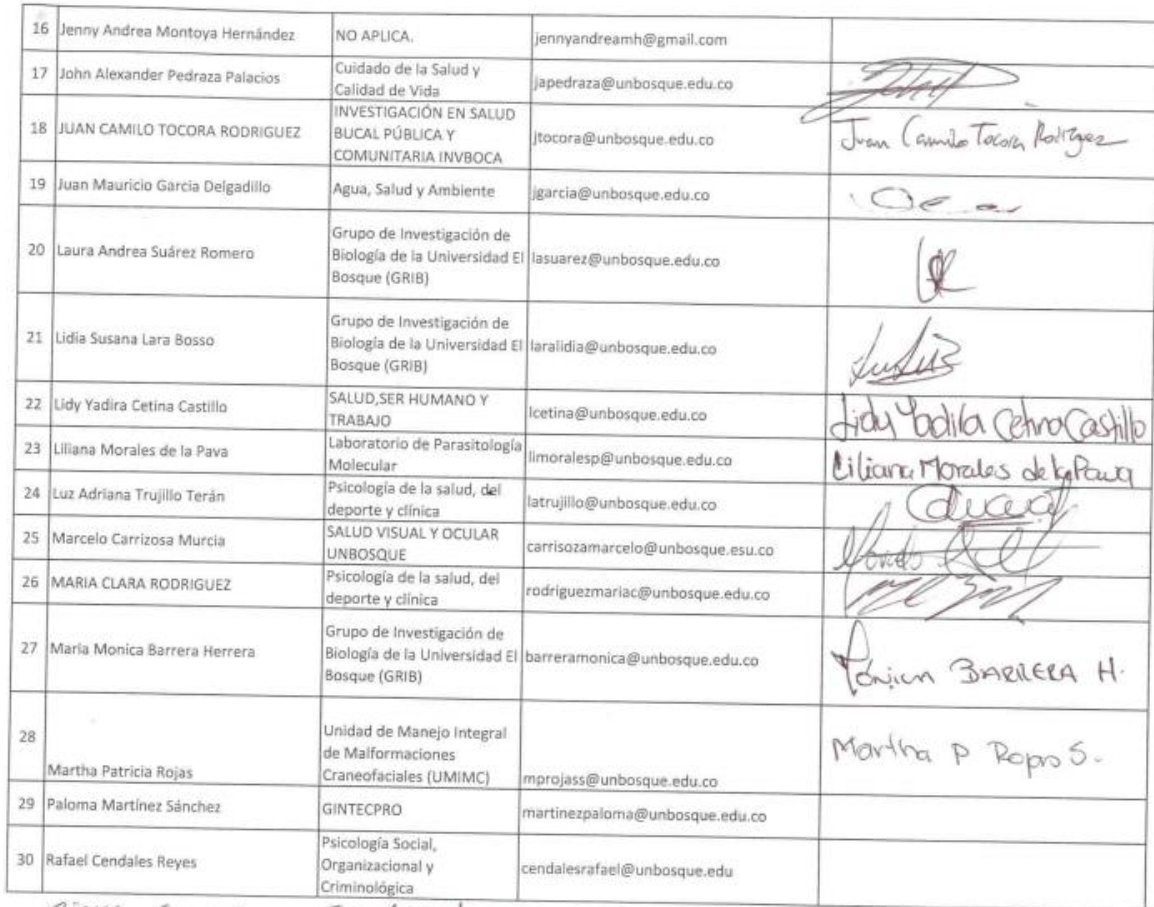 16 Jenny Andrea Montoya Hernández NO APLICA. jennyandreamh@gmail.com
17 John Alexander Pedraza Palacios Cuidado de la Salud y Calidad de Vida japedraza@unbosque.edu.co
18 JUAN CAMILO TOCORA RODRIGUEZ INVESTIGACIÓN EN SALUD BUCAL PÚBLICA Y COMUNITARIA INVBOCA jtocora@unbosque.edu.co Juan Camilo Tocora Rodriguez
19 Juan Mauricio Garcia Delgadillo Agua, Salud y Ambiente jgarcia@unbosque.edu.co
20 Laura Andrea Suárez Romero Grupo de Investigación de Biología de la Universidad El Bosque (GRIB) lasuarez@unbosque.edu.co
21 Lidia Susana Lara Bosso Grupo de Investigación de Biología de la Universidad El Bosque (GRIB) laralidia@unbosque.edu.co
22 Lidy Yadira Cetina Castillo SALUD,SER HUMANO Y TRABAJO lcetina@unbosque.edu.co Lidy Yadira Cetina Castillo
23 Liliana Morales de la Pava Laboratorio de Parasitología Molecular limoralesp@unbosque.edu.co Liliana Morales de la Pava
24 Luz Adriana Trujillo Terán Psicología de la salud, del deporte y clínica latrujillo@unbosque.edu.co
25 Marcelo Carrizosa Murcia SALUD VISUAL Y OCULAR UNBOSQUE carrisozamarcelo@unbosque.esu.co
26 MARIA CLARA RODRIGUEZ Psicología de la salud, del deporte y clínica rodriguezmariac@unbosque.edu.co
27 Maria Monica Barrera Herrera Grupo de Investigación de Biología de la Universidad El Bosque (GRIB) barreramonica@unbosque.edu.co Mónica BARRERA H.
28 Martha Patricia Rojas Unidad de Manejo Integral de Malformaciones Craneofaciales (UMIMC) mprojass@unbosque.edu.co Martha P Rojas S.
29 Paloma Martínez Sánchez GINTECPRO martinezpaloma@unbosque.edu.co
30 Rafael Cendales Reyes Psicología Social, Organizacional y Criminológica cendalesrafael@unbosque.edu